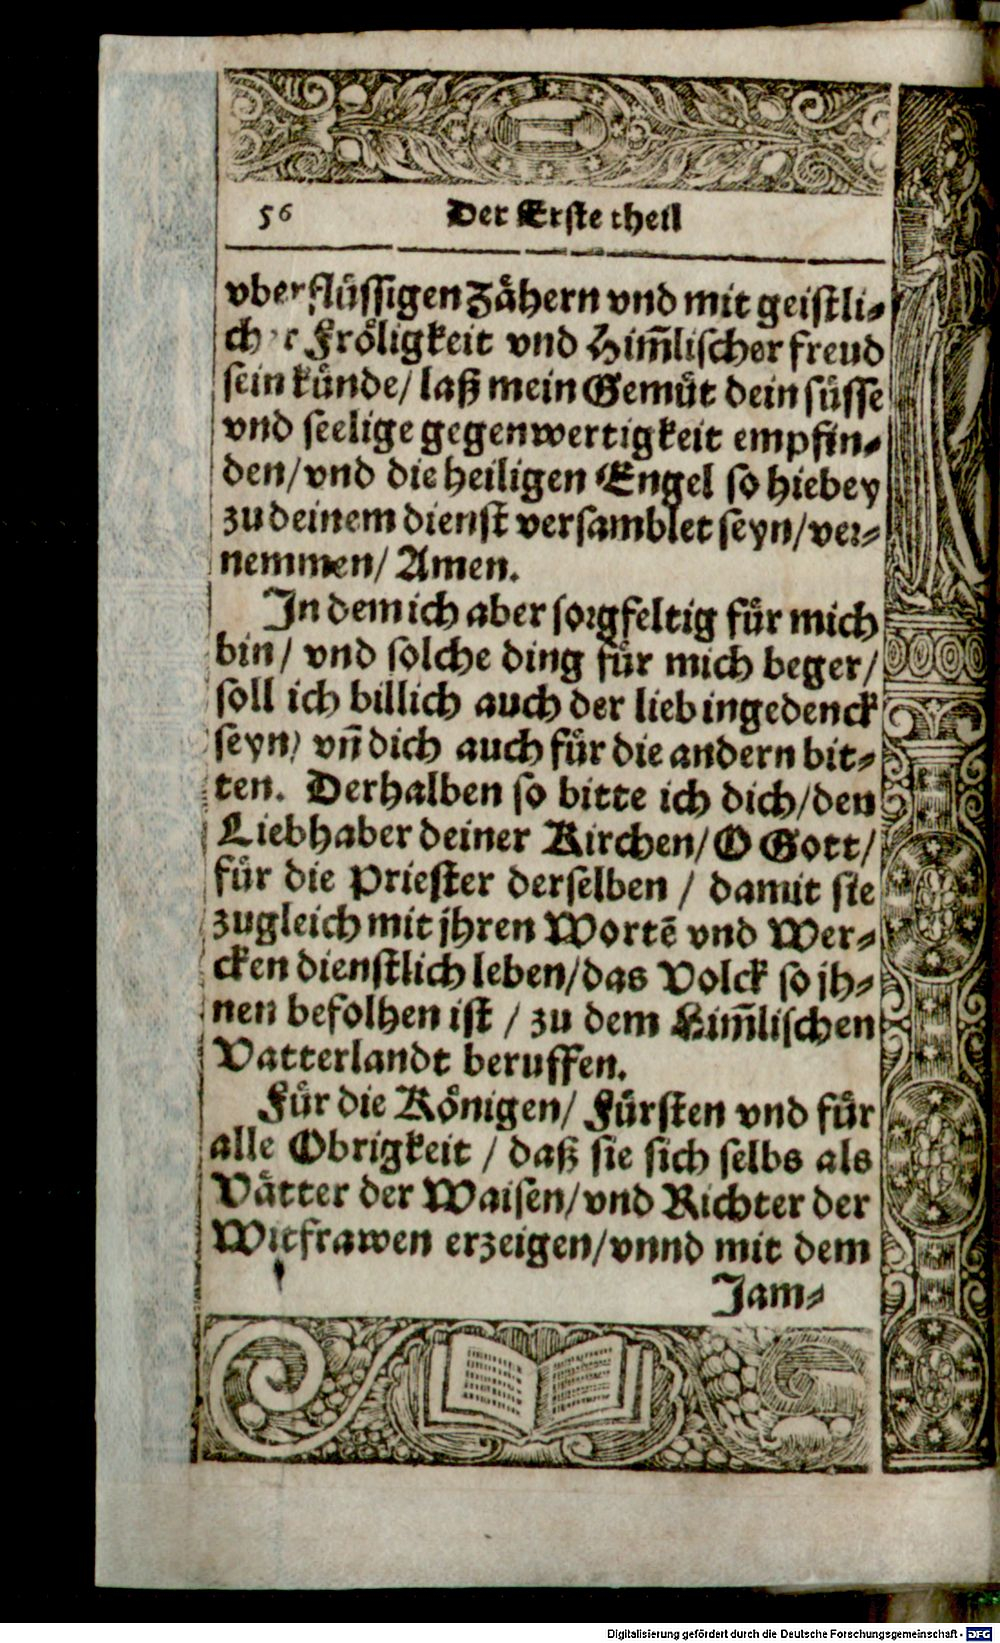 56 Der Erste theil
vberflüssigen Zähern vnd mit geistli⸗
cher Fröligkeit vnd Him̃lischer freud
sein künde/ laß mein Gemüt dein süsse
vnd seelige gegenwertigkeit empfin⸗
den/ vnd die heiligen Engel so hiebey
zu deinem dienst versamblet seyn/ ver⸗
nemmen/ Amen.
In dem ich aber sorgfeltig für mich
bin/ vnd solche ding für mich beger/
soll ich billich auch der lieb ingedenck
seyn/ vñ dich auch für die andern bit⸗
ten. Derhalben so bitte ich dich/ den
Liebhaber deiner Kirchen/ O Gott/
für die Priester derselben / damit sie
zugleich mit jhren Wortẽ vnd Wer⸗
cken dienstlich leben/ das Volck so jh⸗
nen befolhen ist / zu dem Him̃lischen
Vatterlandt beruffen.
Für die Königen/ Fürsten vnd für
alle Obrigkeit / daß sie sich selbs als
Vätter der Waisen/ vnd Richter der
Witfrawen erzeigen/ vnnd mit dem
Jam⸗
Digitalisierung gefördert durch die Deutsche Forschungsgemeinschaft - DFG